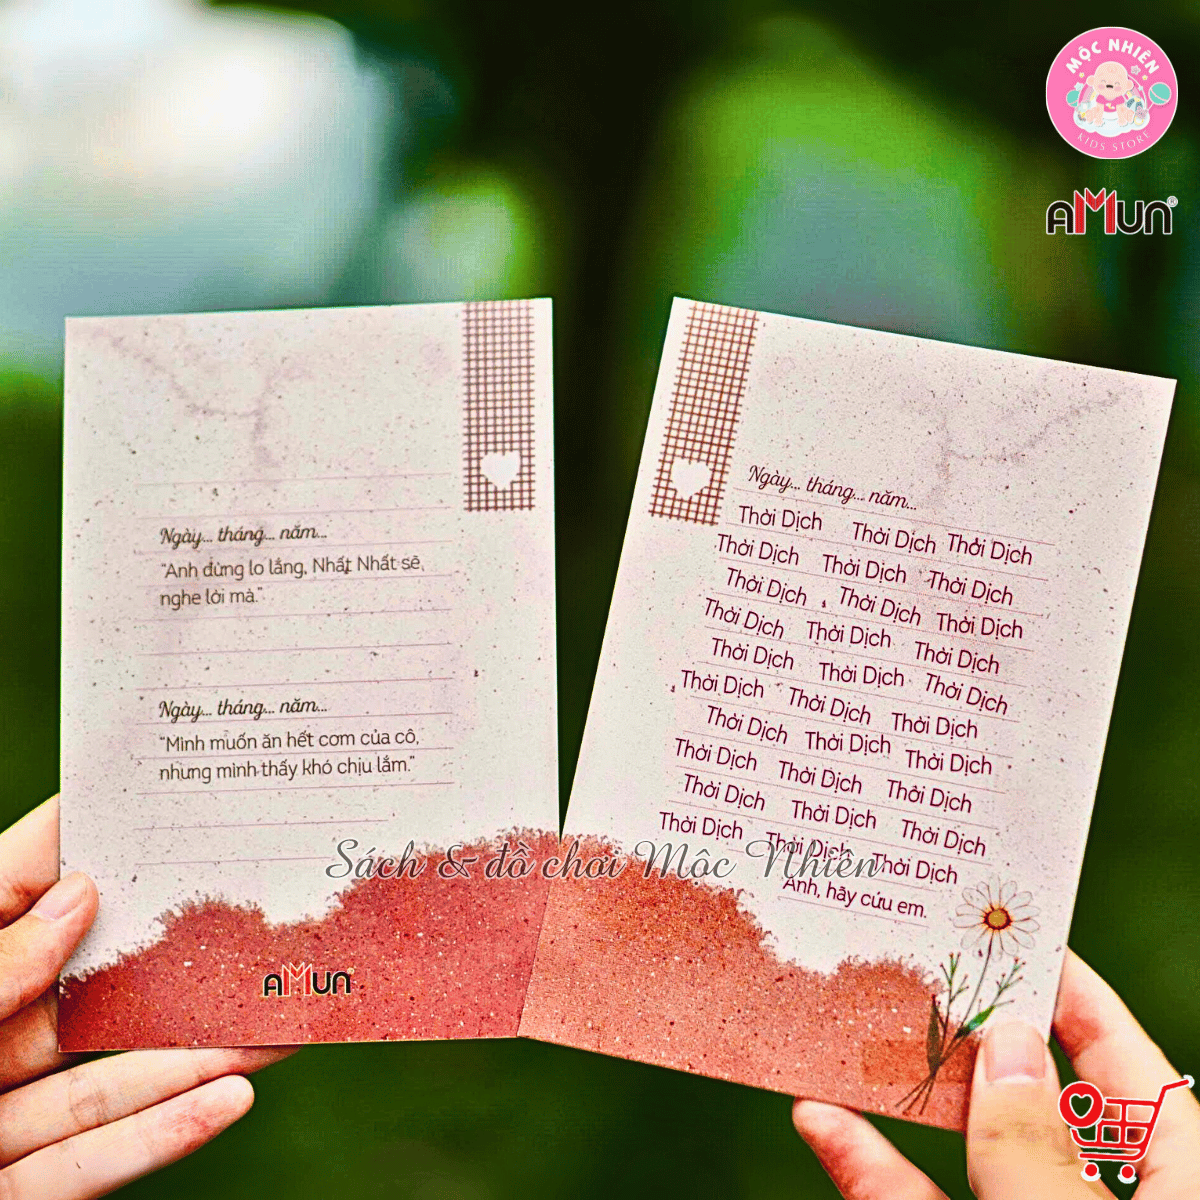 MỘC NHIÊN
KIDS STORE
AMUN®
Ngày... tháng... năm...
"Anh đừng lo lắng, Nhất Nhất sẽ
nghe lời mà."
Ngày... tháng... năm...
"Mình muốn ăn hết cơm của cô,
nhưng mình thấy khó chịu lắm."
AMUN
Ngày... tháng... năm...
Thời Dịch Thời Dịch Thời Dịch
Thời Dịch Thời Dịch Thời Dịch
Thời Dịch Thời Dịch Thời Dịch
Thời Dịch Thời Dịch Thời Dịch
Thời Dịch Thời Dịch Thời Dịch
Thời Dịch Thời Dịch Thời Dịch
Thời Dịch Thời Dịch Thời Dịch
Thời Dịch Thời Dịch Thời Dịch
Thời Dịch Thời Dịch Thời Dịch
Thời Dịch Thời Dịch Thời Dịch
Anh, hãy cứu em.
Sách & đồ chơi Mộc Nhiên